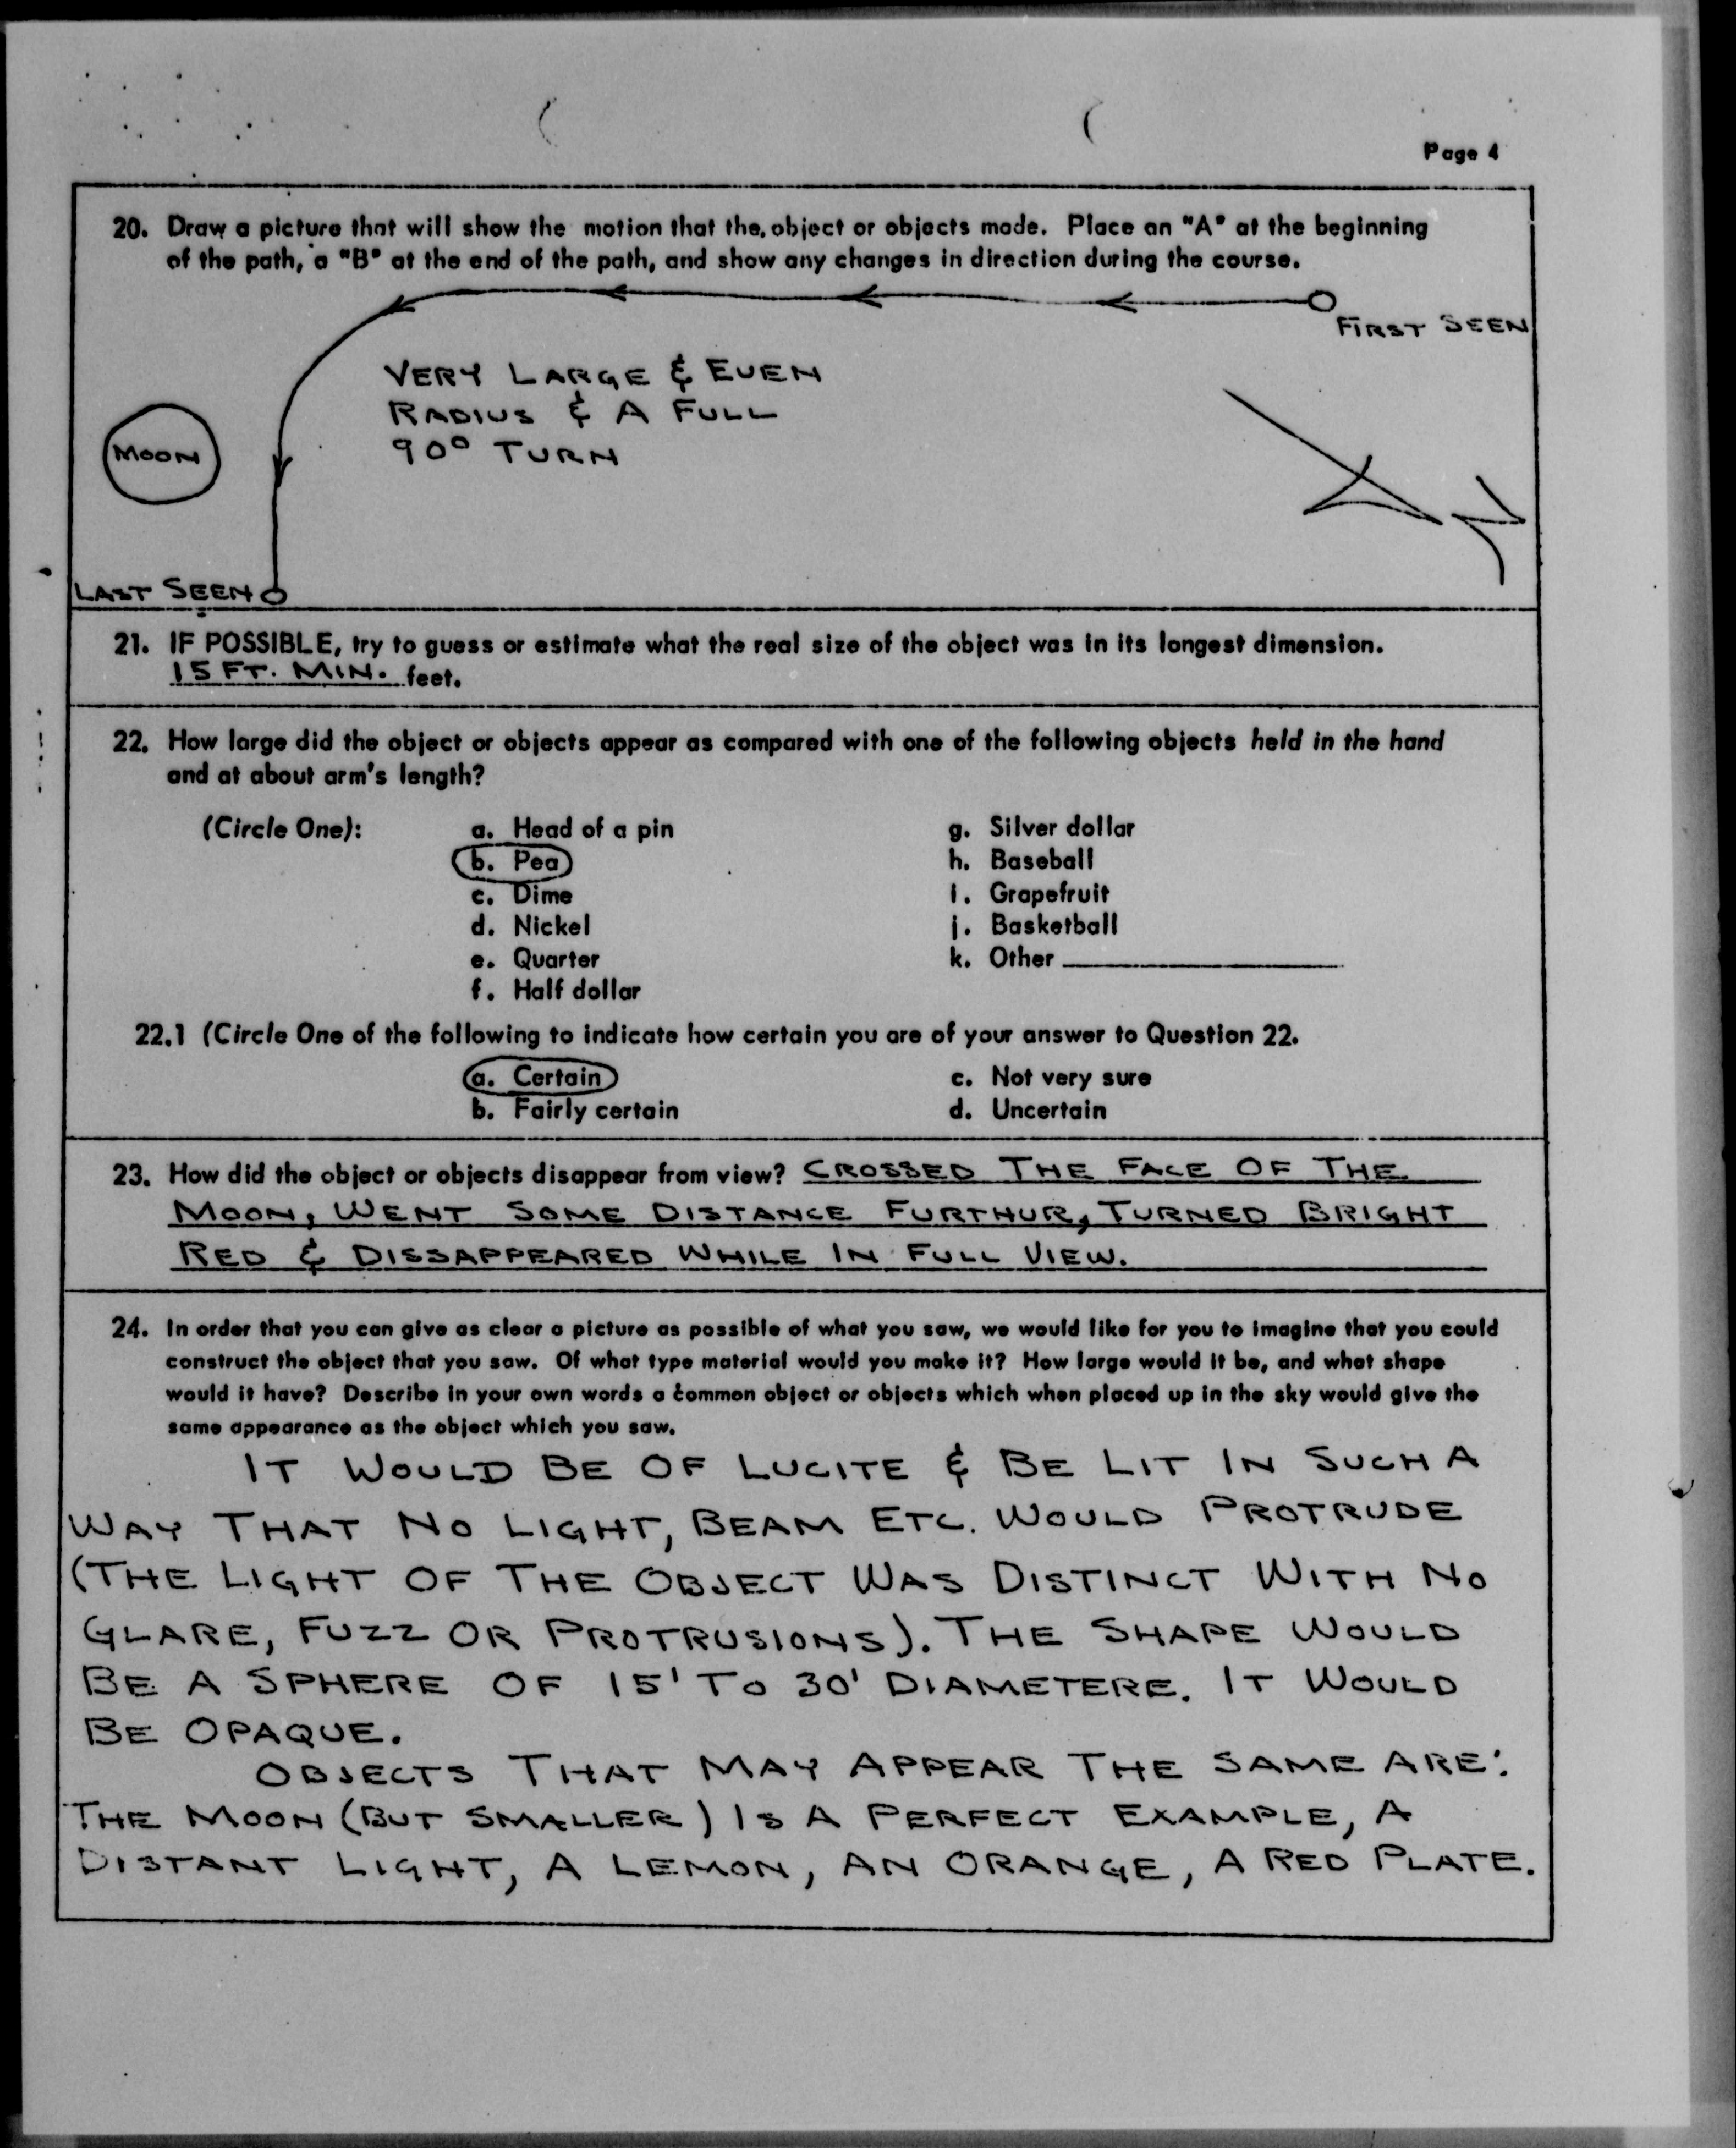 Page 4
20. Draw a picture that will show the motion that the object or objects made. Place an "A" at the beginning
of the path, a "B" at the end of the path, and show any changes in direction during the course.
FIRST SEEN
VERY LARGE & EVEN
RADIUS & A FULL
90° TURN
MOON
LAST SEEN
21. IF POSSIBLE, try to guess or estimate what the real size of the object was in its longest dimension.
15 FT. MIN. feet.
22. How large did the object or objects appear as compared with one of the following objects held in the hand
and at about arm's length?
(Circle One): a. Head of a pin g. Silver dollar
b. Pea h. Baseball
c. Dime i. Grapefruit
d. Nickel j. Basketball
e. Quarter k. Other
f. Half dollar
22.1 (Circle One of the following to indicate how certain you are of your answer to Question 22.
a. Certain c. Not very sure
b. Fairly certain d. Uncertain
23. How did the object or objects disappear from view? CROSSED THE FACE OF THE
MOON, WENT SOME DISTANCE FURTHUR, TURNED BRIGHT
RED & DISSAPPEARED WHILE IN FULL VIEW.
24. In order that you can give as clear a picture as possible of what you saw, we would like for you to imagine that you could
construct the object that you saw. Of what type material would you make it? How large would it be, and what shape
would it have? Describe in your own words a common object or objects which when placed up in the sky would give the
same appearance as the object which you saw.
IT WOULD BE OF LUCITE & BE LIT IN SUCH A
WAY THAT NO LIGHT, BEAM ETC. WOULD PROTRUDE
(THE LIGHT OF THE OBJECT WAS DISTINCT WITH NO
GLARE, FUZZ OR PROTRUSIONS). THE SHAPE WOULD
BE A SPHERE OF 15' TO 30' DIAMETERE. IT WOULD
BE OPAQUE.
OBJECTS THAT MAY APPEAR THE SAME ARE:
THE MOON (BUT SMALLER) IS A PERFECT EXAMPLE, A
DISTANT LIGHT, A LEMON, AN ORANGE, A RED PLATE.